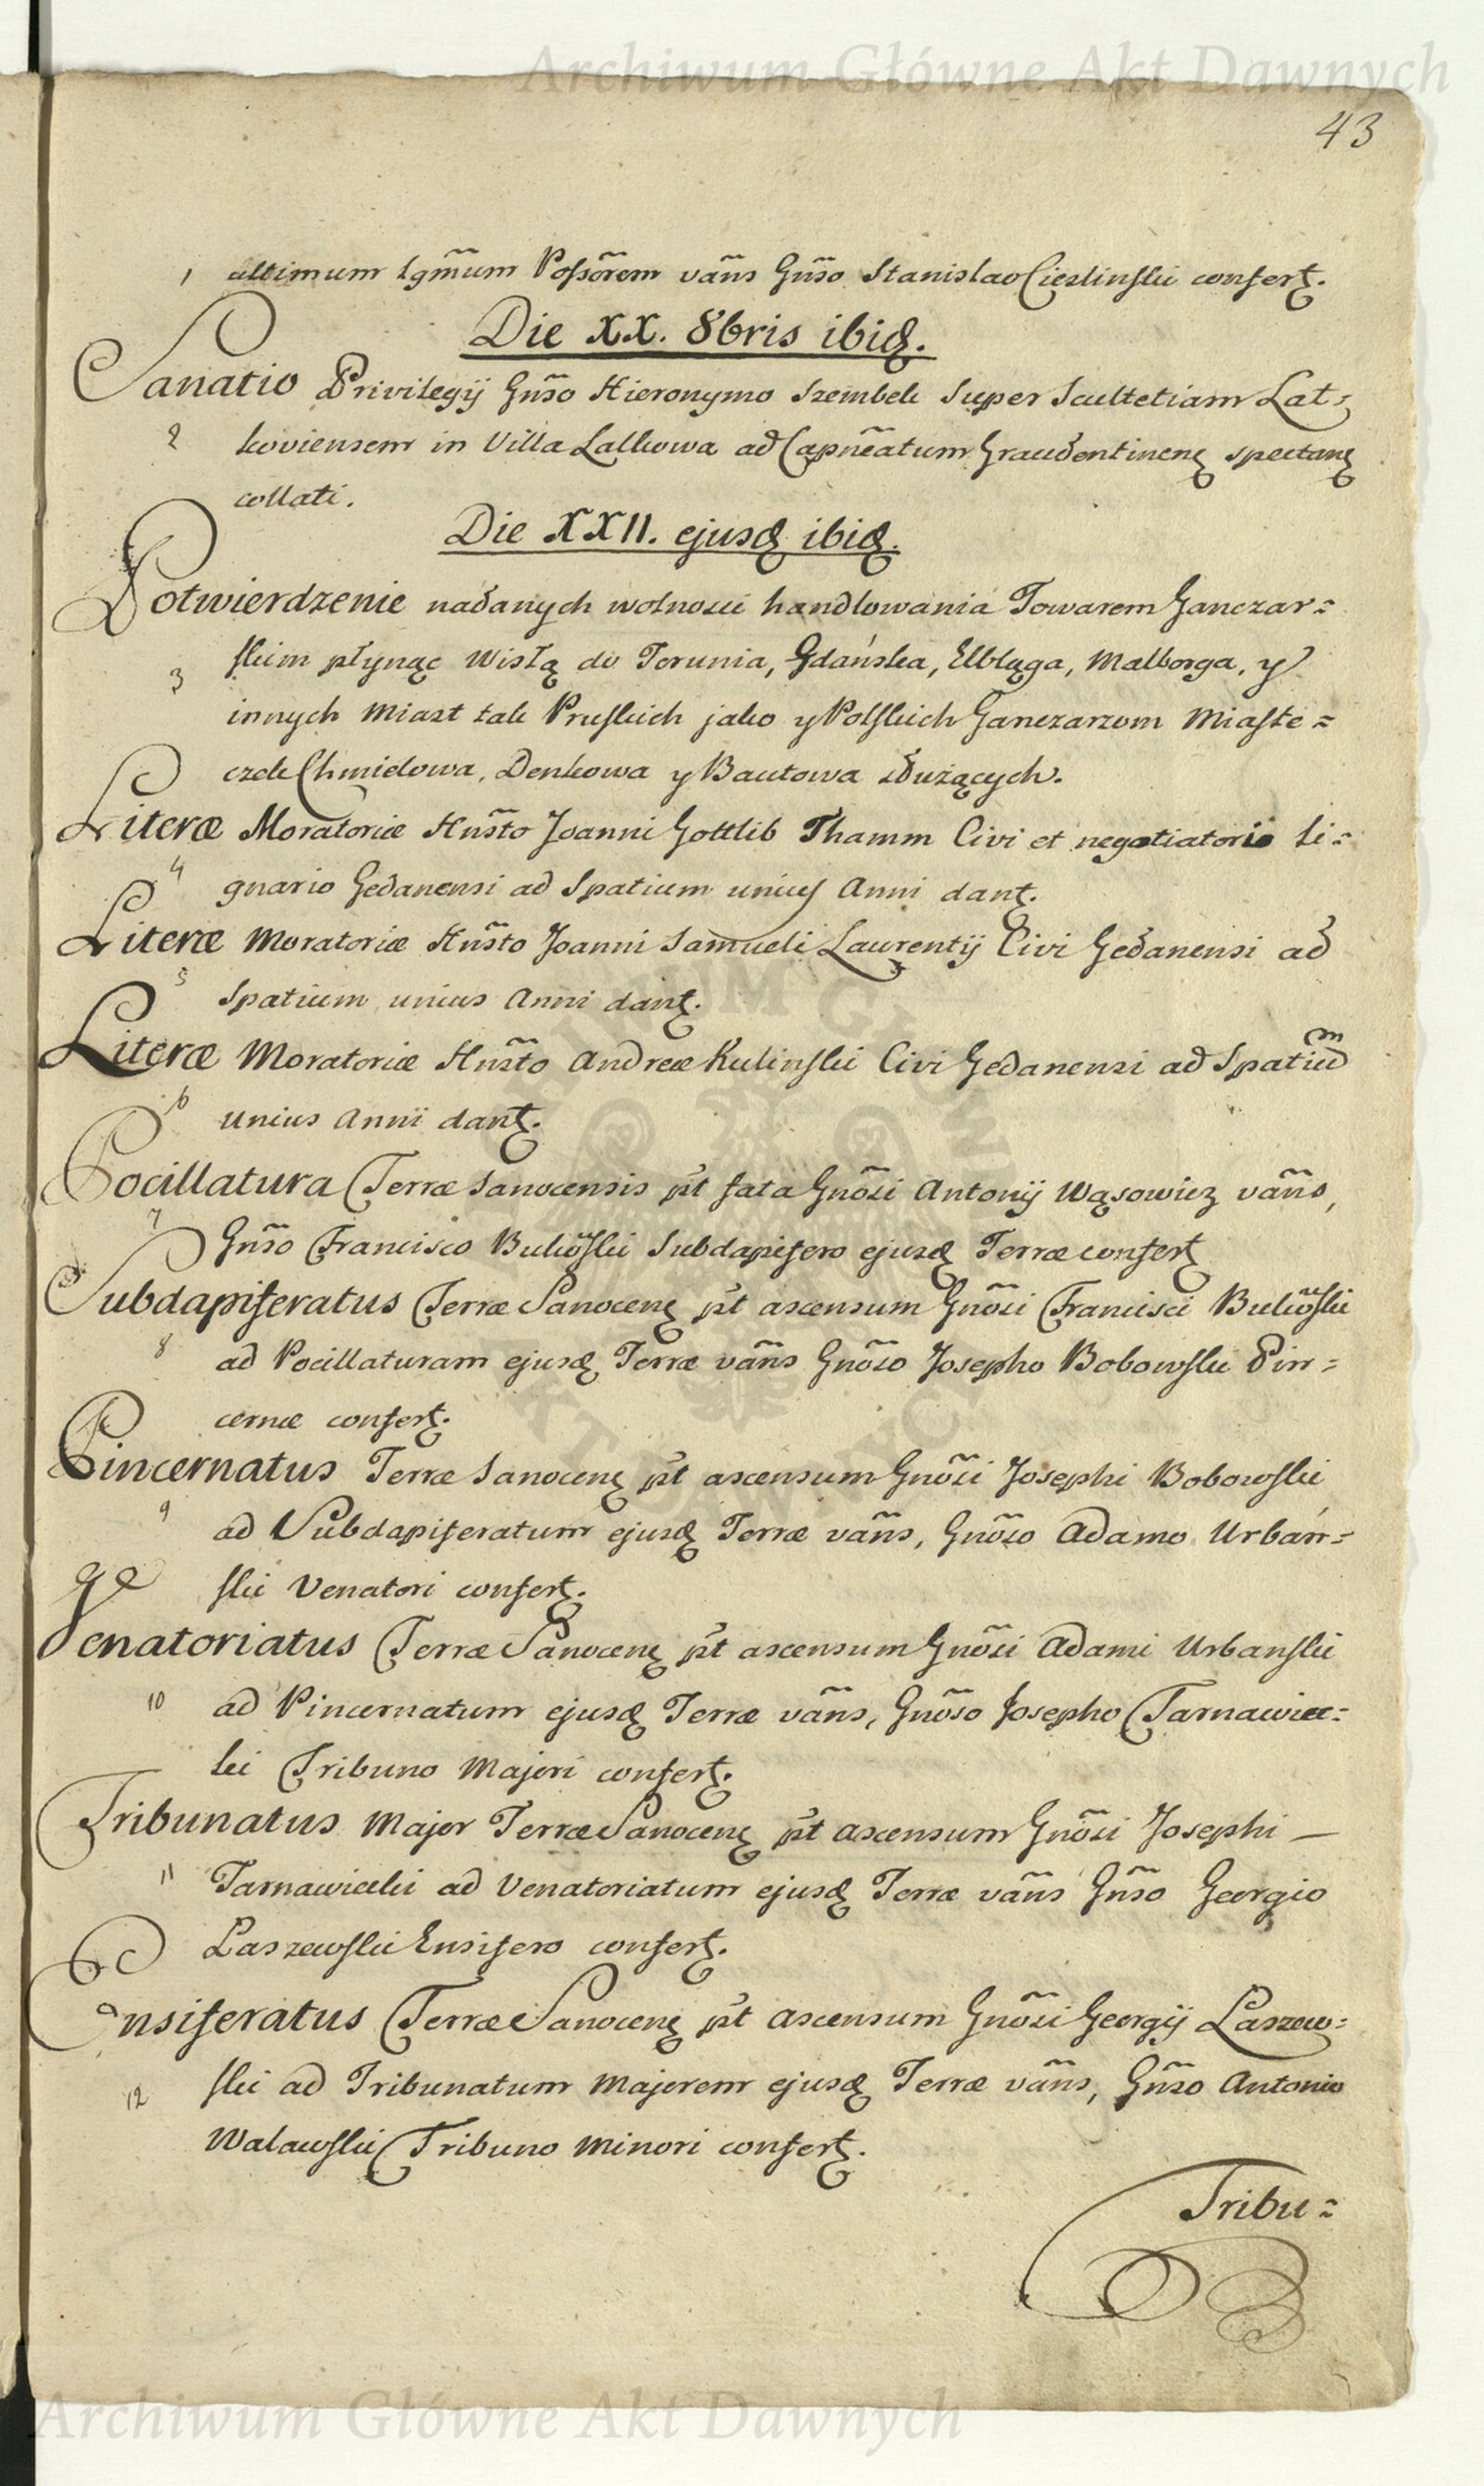 Archiwum Główne Akt Dawnych
43
1 ultimum lgm̃um Possõrem vãns Gñso Stanislao Cieslinski confert.
Die XX. 8bris ibid.
Sanatio Privilegij Gñso Hieronymo Szembek super Scultetiam Lat=
2 koviensem in Villa Lalkowa ad Capnẽatum Graudentinen spectan
collati.
Die XXII. ejusd ibid.
Potwierdzenie nadanych wolnosci handlowania Towarem Ganczar=
3 skim płynąc Wisłą do Torunia, Gdańska, Elbląga, Malborga, y
innych Miast tak Pruskich jako y Polskich Ganczarzom Miaste=
czek Chmielowa, Denkowa y Bautowa służących.
Literæ Moratoriæ Hñsto Joanni Gottlib Thamm Civi et negotiatori li=
4 gnario Gedanensi ad Spatium unius Anni dant.
Literæ Moratoriæ Hñsto Joanni Samueli Laurentij Civi Gedanensi ad
5 Spatium unius Anni dant.
Literæ Moratoriæ Hñsto Andreæ Kulinski Civi Gedanensi ad Spatium
6 unius Anni dant.
Pocillatura Terræ Sanocensis pt fata Gnõsi Antonij Wąsowicz vãns,
7 Gñso Francisco Bukõski Subdapifero ejusd Terræ confert
Subdapiferatus Terræ Sanocen pt ascensum Gnõsi Francisci Bukõski
8 ad Pocillaturam ejusd Terræ vãns Gnõso Josepho Bobowski Pin=
cernæ confert.
Pincernatus Terræ Sanocen pt ascensum Gnõsi Josephi Bobowski
9 ad Subdapiferatum ejusd Terræ vãns, Gnõso Adamo Urbań=
ski Venatori confert.
Venatoriatus Terræ Sanocen pt ascensum Gnõsi Adami Urbanski
10 ad Pincernatum ejusd Terræ vãns, Gnõso Josepho Tarnawiec=
ki Tribuno Majori confert.
Tribunatus Major Terræ Sanocen pt ascensum Gnõsi Josephi —
11 Tarnawiecki ad Venatoriatum ejusd Terræ vãns Gñso Georgio
Laszewski Ensifero confert.
Ensiferatus Terræ Sanocen pt ascensum Gnõsi Georgij Laszew=
12 ski ad Tribunatum Majorem ejusd Terræ vãns, Gñso Antonio
Walawski Tribuno Minori confert.
Tribu=
Archiwum Główne Akt Dawnych